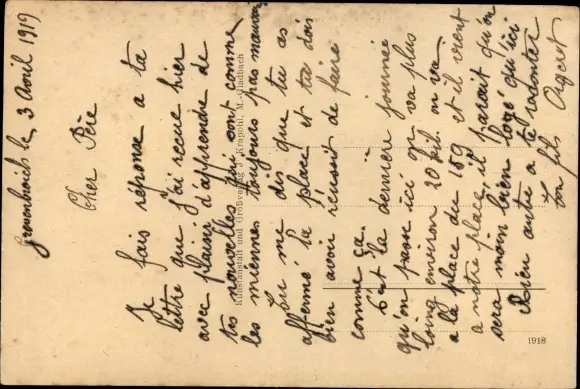 Grevenbroich le 3 Avril 1919
Cher Père
Je fais réponse a ta
lettre que j'ai recue hier
avec plaisir d'apprendre de
tes nouvelles qui sont comme
les miennes toujours pas mauvais
tu me dis que tu as
affermé la place et tu dois
bien avoir réussit de faire
comme ça.
C'est la dernière journée
qu'on passe ici on va plus
loing environ 20 kil. on va
a la place du 189 et il vient
a notre place, il parait qu'on
sera moin bien logé qu'ici
Rien autre a te raconter
ton fils
Kunstanstalt und Großverlag J. Krapohl, M.-Gladbach
1918